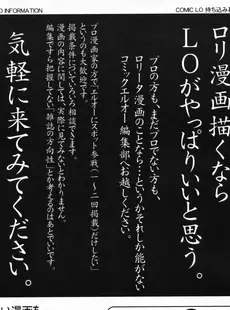 INFORMATION
COMIC LO 持ち込み
ロリ漫画描くなら
LOがやっぱりいいと思う。
プロの方も、まだプロでない方も、
ロリータ漫画のことなら…というかそれしか能がない
コミックエルオー編集部へお越しください。
プロ漫画家の方で「エルオーにスポット参戦(一～二回掲載)だけしたい」
というのも大歓迎です。
掲載条件についていろいろ相談できます。
漫画の内容に関しては、実際に見てみないとわかりません。
編集ですら把握してない「雑誌の方向性」とか考えるのはあとでいいです。
気軽に来てみてください。